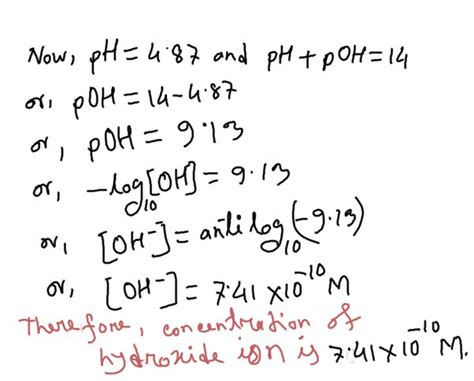 Now, pH = 4·87 and pH + pOH = 14
or, pOH = 14 - 4·87
or, pOH = 9·13
or, -log₁₀[OH] = 9·13
or, [OH⁻] = antilog₁₀(-9·13)
or, [OH⁻] = 7·41 ×10⁻¹⁰ M
Therefore, concentration of
hydroxide ion is 7·41 ×10⁻¹⁰ M.